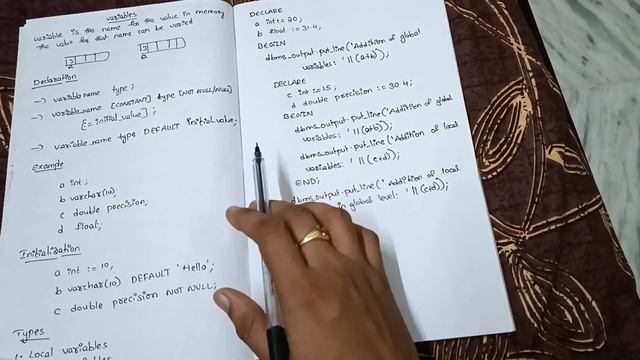 variables
variable is the name for the value in memory
the value for that name can be varied
a
Declaration
→ variable name type ;
→ variable_name [CONSTANT] type [NOT NULL/NULL]
[:= initial_value] ;
→ variable_name type DEFAULT initial value;
Example
a int ;
b varchar(10)
c double precision;
d float;
Initialization
a int := 10,
b varchar(10) DEFAULT 'Hello';
c double precision NOT NULL;
Types
1. Local variables
DECLARE
a int := 20;
b float := 31.4;
BEGIN
dbms_output.put_line('Addition of global
variables: ' || (a+b));
DECLARE
c int := 15;
d double precision := 30.4;
BEGIN
dbms_output.put_line('Addition of global
variables: ' || (a+b));
dbms_output.put_line('Addition of local
variables: ' || (c+d));
END;
dbms_output.put_line(' Addition of local
in global level: ' || (c+d));